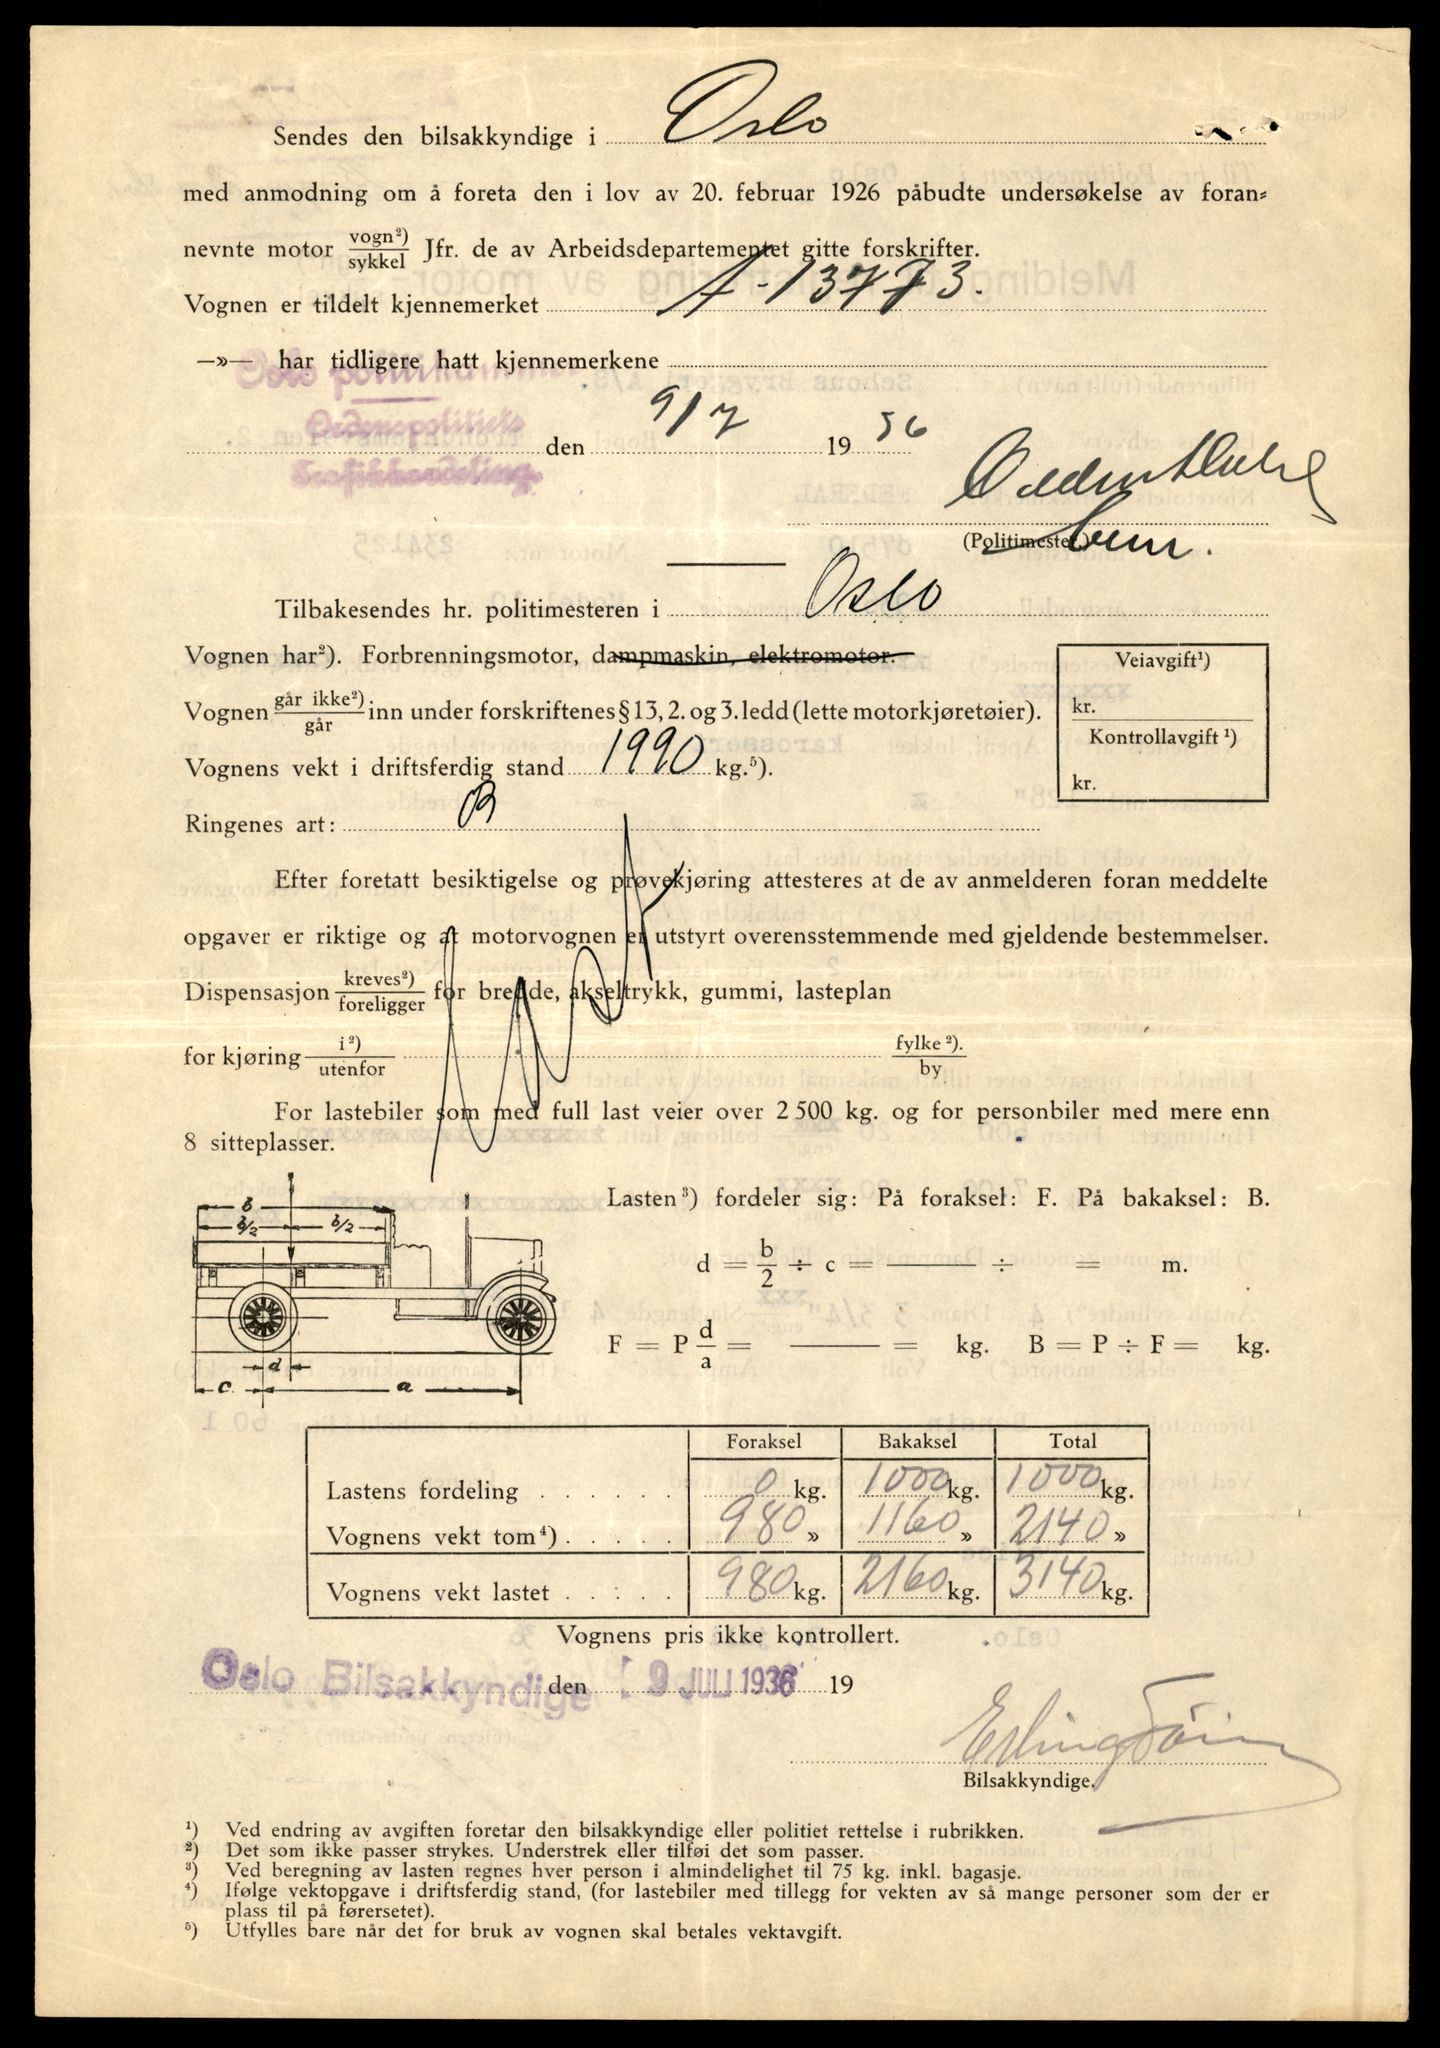 Sendes den bilsakkyndige i Oslo
med anmodning om å foreta den i lov av 20. februar 1926 påbudte undersøkelse av foran-
nevnte motor vogn²)/sykkel Jfr. de av Arbeidsdepartementet gitte forskrifter.
Vognen er tildelt kjennemerket A-13773.
—»— har tidligere hatt kjennemerkene
Oslo politikammer
Ordenspolitiets
Trafikkavdeling
den 9/7 1936
(Politimester.)
Tilbakesendes hr. politimesteren i Oslo
Vognen har²). Forbrenningsmotor, dampmaskin, elektromotor.
Vognen går ikke²)/går inn under forskriftenes § 13, 2. og 3. ledd (lette motorkjøretøier).
Veiavgift¹)
kr.
Kontrollavgift¹)
kr.
Vognens vekt i driftsferdig stand 1990 kg.⁵).
Ringenes art: B
Efter foretatt besiktigelse og prøvekjøring attesteres at de av anmelderen foran meddelte
opgaver er riktige og at motorvognen er utstyrt overensstemmende med gjeldende bestemmelser.
Dispensasjon kreves²)/foreligger for bredde, akseltrykk, gummi, lasteplan
for kjøring i²)/utenfor fylke²)./by
For lastebiler som med full last veier over 2 500 kg. og for personbiler med mere enn
8 sitteplasser.
Lasten³) fordeler sig: På foraksel: F. På bakaksel: B.
b
b/2 b/2
d = b/2 ÷ c = ——— ÷ = m.
F = P d/a = ——— = kg. B = P ÷ F = kg.
d
c a
Foraksel Bakaksel Total
Lastens fordeling . . . . . . 0 kg. 1000 kg. 1000 kg.
Vognens vekt tom⁴) . . . . . 980 » 1160 » 2140 »
Vognens vekt lastet . . . . . 980 kg. 2160 kg. 3140 kg.
Vognens pris ikke kontrollert.
Oslo Bilsakkyndige den 9 JULI 1936 19
Erling
Bilsakkyndige.
¹) Ved endring av avgiften foretar den bilsakkyndige eller politiet rettelse i rubrikken.
²) Det som ikke passer strykes. Understrek eller tilføi det som passer.
³) Ved beregning av lasten regnes hver person i almindelighet til 75 kg. inkl. bagasje.
⁴) Ifølge vektopgave i driftsferdig stand, (for lastebiler med tillegg for vekten av så mange personer som der er
plass til på førersetet).
⁵) Utfylles bare når det for bruk av vognen skal betales vektavgift.